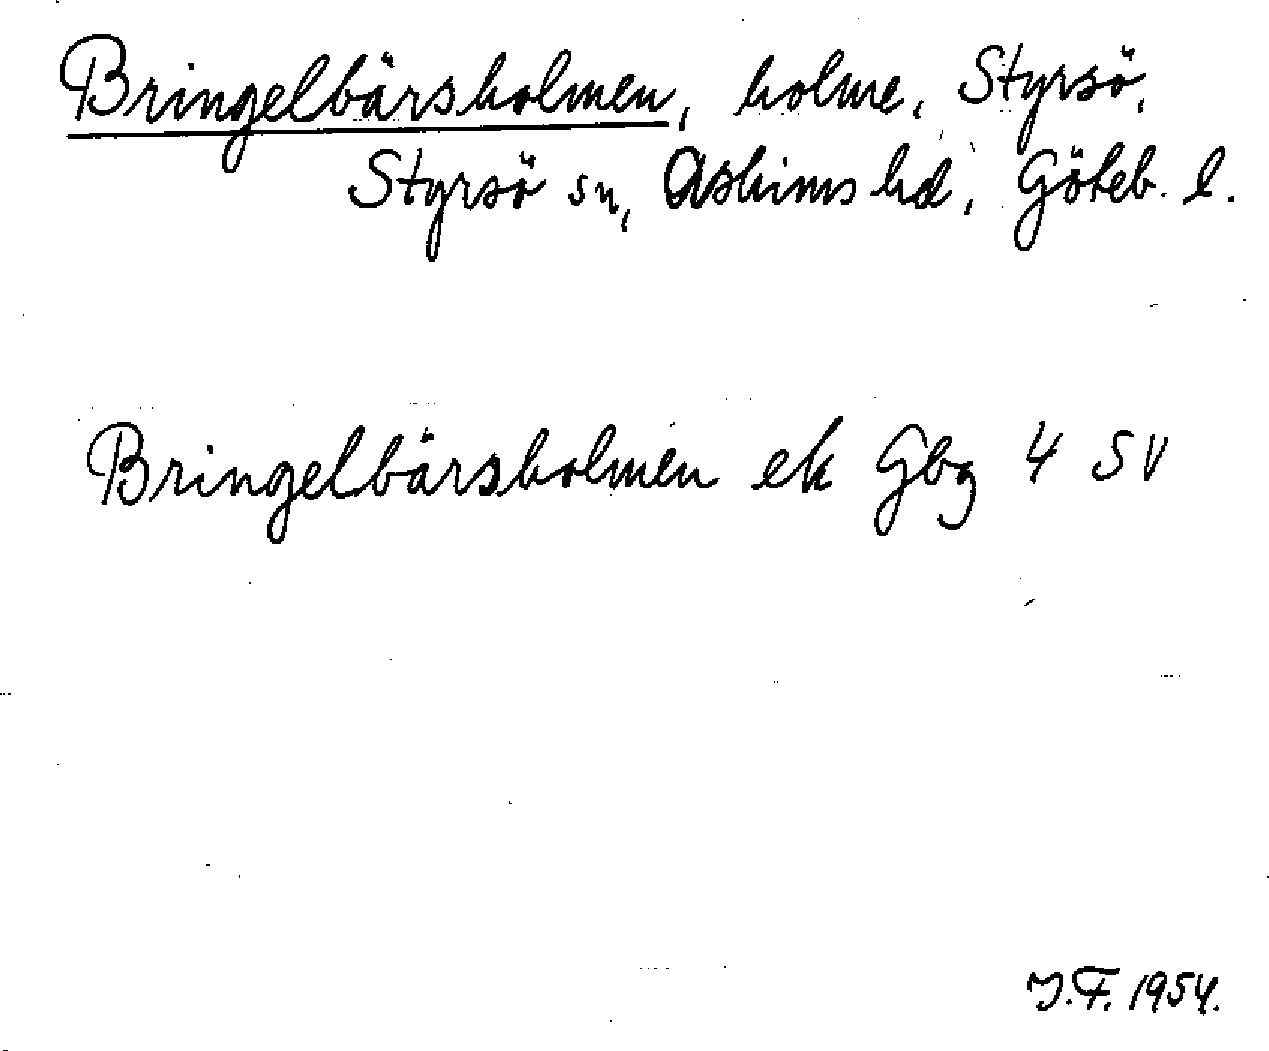 Bringelbärsholmen, holme, Styrsö,
Styrsö sn, Askims hd, Göteb. l.
Bringelbärsholmen ek Gbg 4 SV
J.F. 1954.